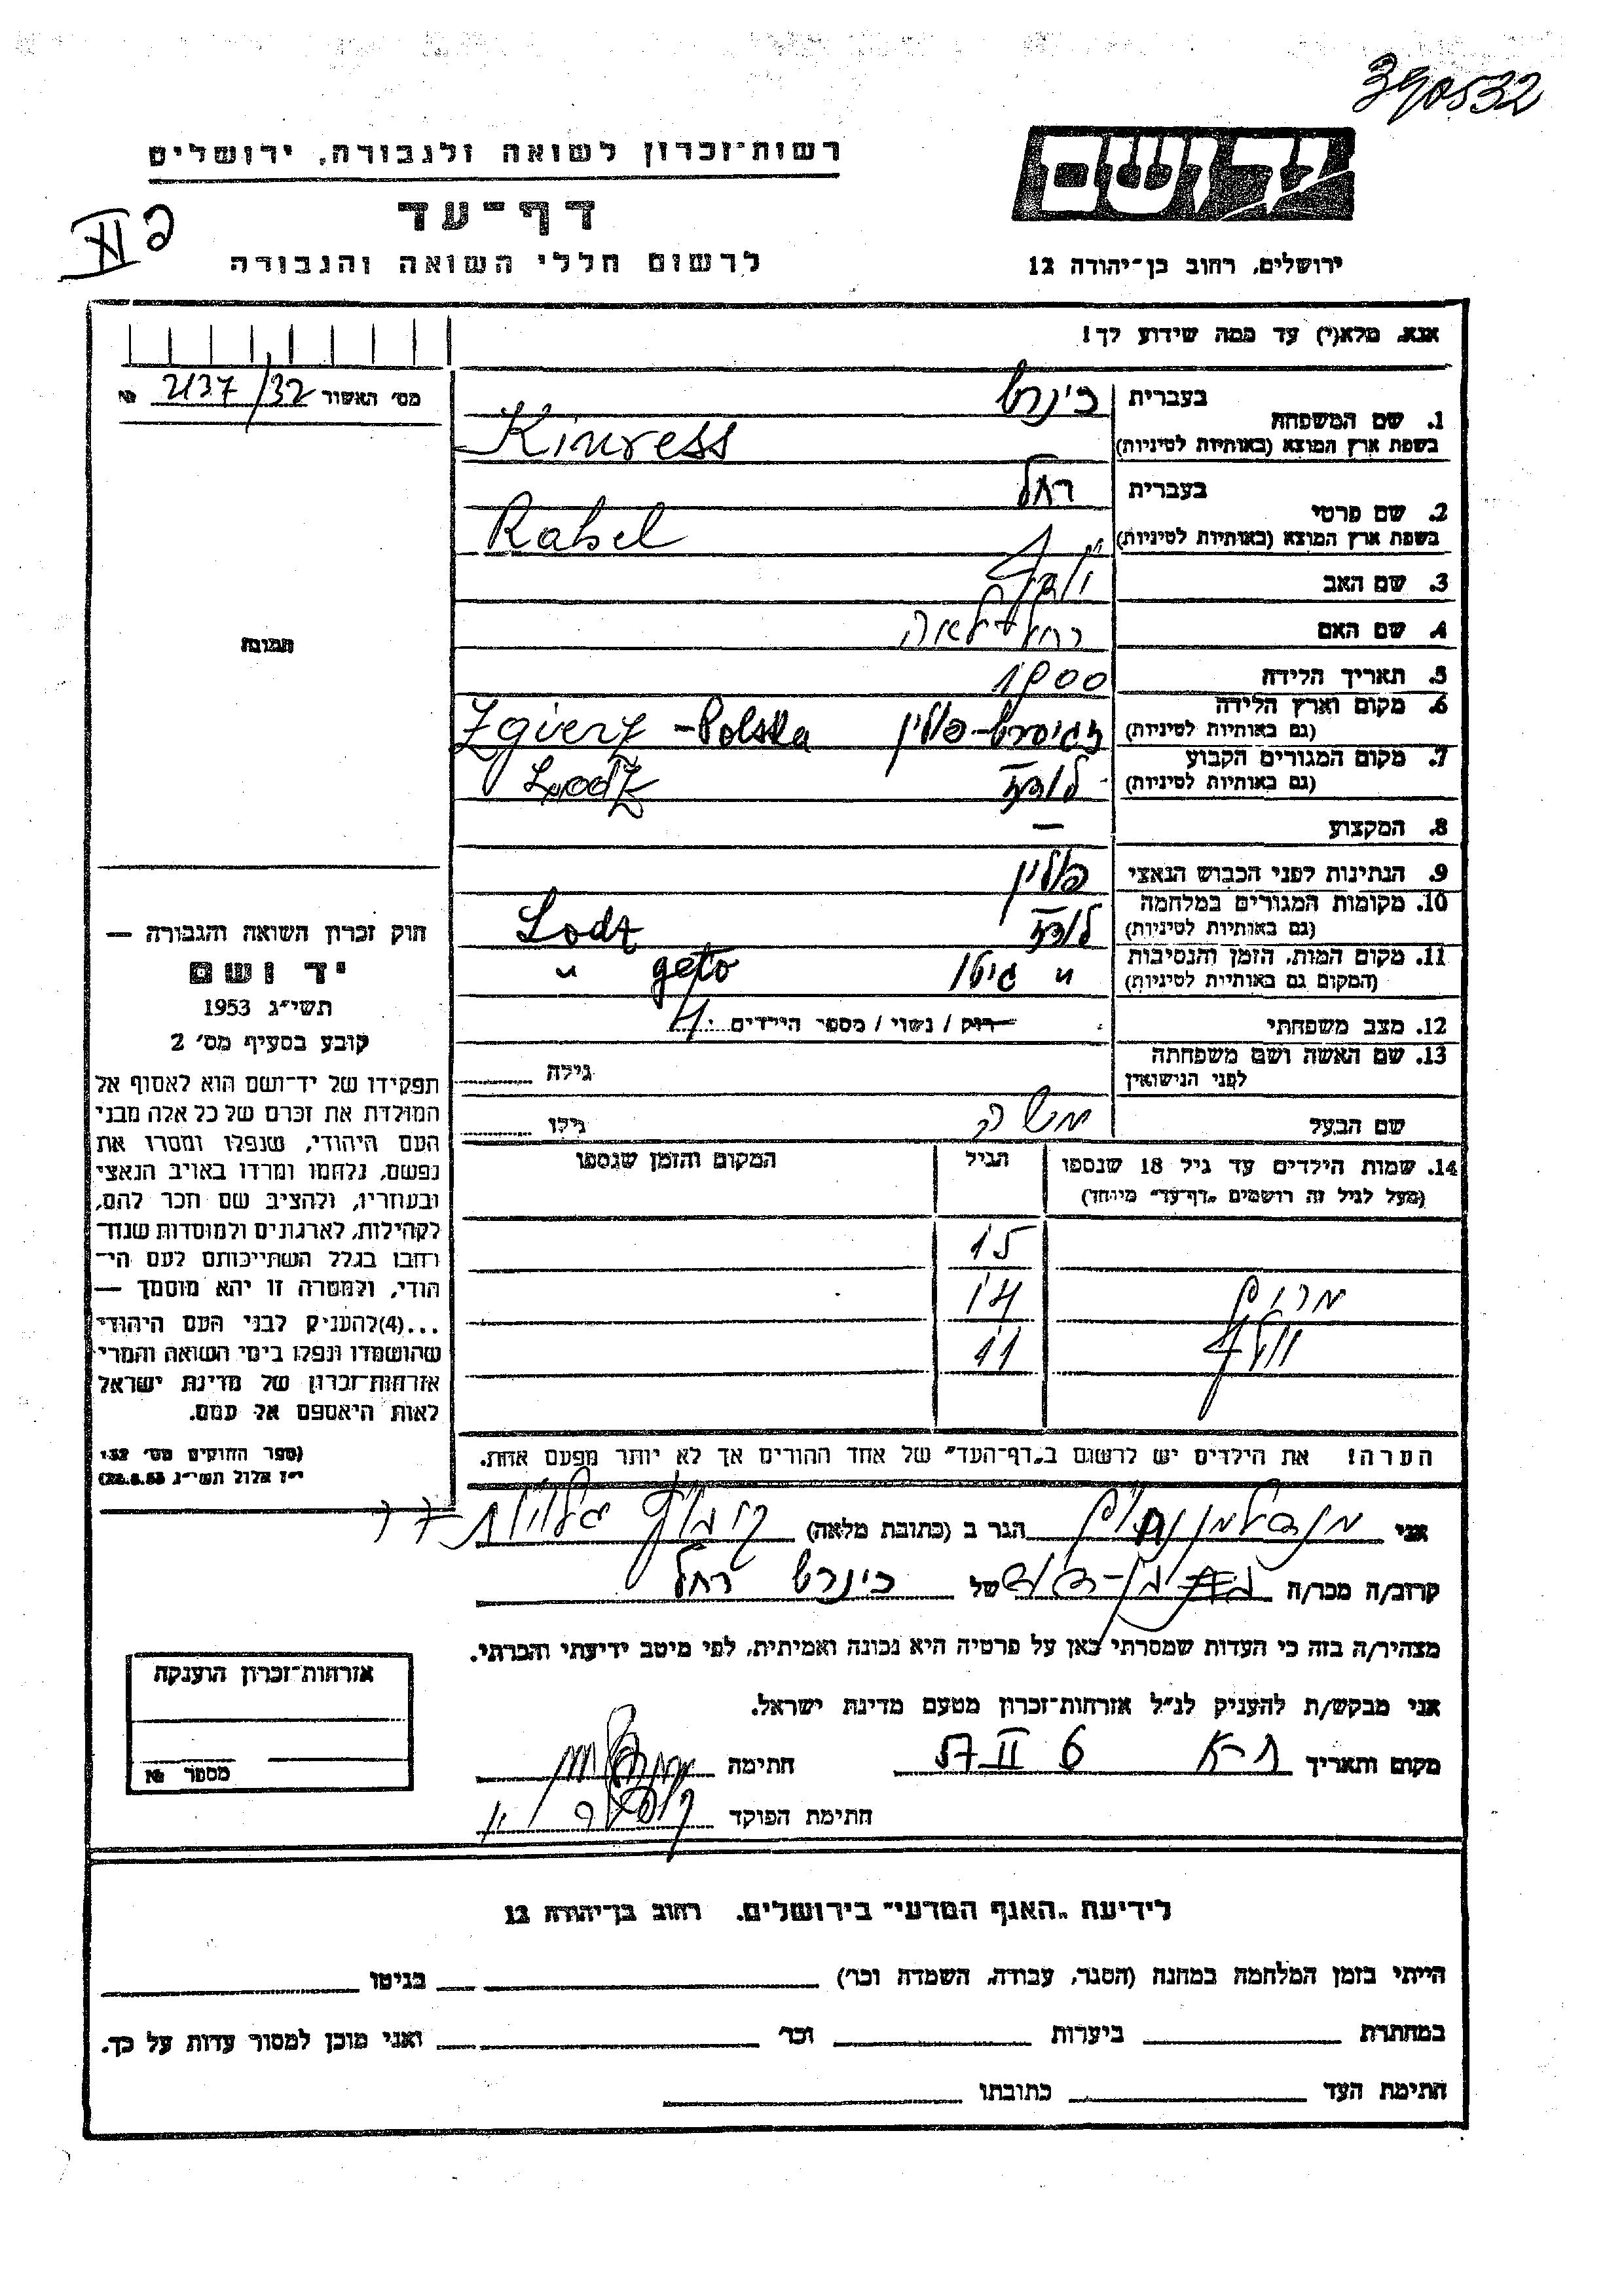 390532
רשות־זכרון לשואה ולגבורה, ירושלים
יד ושם
דף־עד
לרשום חללי השואה והגבורה
ירושלים, רחוב בן־יהודה 12
אנא, מלא(י) עד כמה שידוע לך!
מס׳ האשור 2137/32 №
1. שם המשפחה
בעברית
בשפת ארץ המוצא (באותיות לטיניות)
Kinress
2. שם פרטי
בעברית רחל
בשפת ארץ המוצא (באותיות לטיניות) Rahel
3. שם האב
4. שם האם רחל־לאה
5. תאריך הלידה 1900
6. מקום וארץ הלידה
(גם באותיות לטיניות) פולין Zgierz - Polska
7. מקום המגורים הקבוע
(גם באותיות לטיניות) לודז Lodz
8. המקצוע —
9. הנתינות לפני הכבוש הנאצי פולין
10. מקומות המגורים במלחמה
(גם באותיות לטיניות) לודז Lodz
11. מקום המות, הזמן והנסיבות
(המקום גם באותיות לטיניות) " גיטו " geto
12. מצב משפחתי רוק / נשוי / מספר הילדים 4
13. שם האשה ושם משפחתה
לפני הנישואין גילה
שם הבעל משה גילו
14. שמות הילדים עד גיל 18 שנספו
(מעל לגיל זה רושמים „דף־עד״ מיוחד)
הגיל
המקום והזמן שנספו
15
מרים 14
11
הערה! את הילדים יש לרשום ב„דף־העד״ של אחד ההורים אך לא יותר מפעם אחת.
תמונה
חוק זכרון השואה והגבורה —
יד ושם
תשי״ג 1953
קובע בסעיף מס׳ 2
תפקידו של יד־ושם הוא לאסוף אל
המולדת את זכרם של כל אלה מבני
העם היהודי, שנפלו ומסרו את
נפשם, נלחמו ומרדו באויב הנאצי
ובעוזריו, ולהציב שם וזכר להם,
לקהילות, לארגונים ולמוסדות שנח־
רבו בגלל השתייכותם לעם הי־
הודי, ולמטרה זו יהא מוסמך —
...(4)להעניק לבני העם היהודי
שהושמדו ונפלו בימי השואה והמרי
אזרחות־זכרון של מדינת ישראל
לאות היאספם אל עמם.
(ספר החוקים מס׳ 132
י״ז אלול תשי״ג 28.8.53)
אני הגר ב (כתובת מלאה) גלויות
קרוב/ה מכר/ה של רחל
מצהיר/ה בזה כי העדות שמסרתי כאן על פרטיה היא נכונה ואמיתית, לפי מיטב ידיעתי והכרתי.
אני מבקש/ת להעניק לנ״ל אזרחות־זכרון מטעם מדינת ישראל.
מקום ותאריך ת-א 6 II 57 חתימה
חתימת הפוקד
אזרחות־זכרון הוענקה
מספר №
לידיעת „האגף המדעי״ בירושלים. רחוב בן־יהודה 12
הייתי בזמן המלחמה במחנה (הסגר, עבודה, השמדה וכו׳) בגיטו
במחתרת ביערות וכו׳ ואני מוכן למסור עדות על כך.
חתימת העד כתובתו